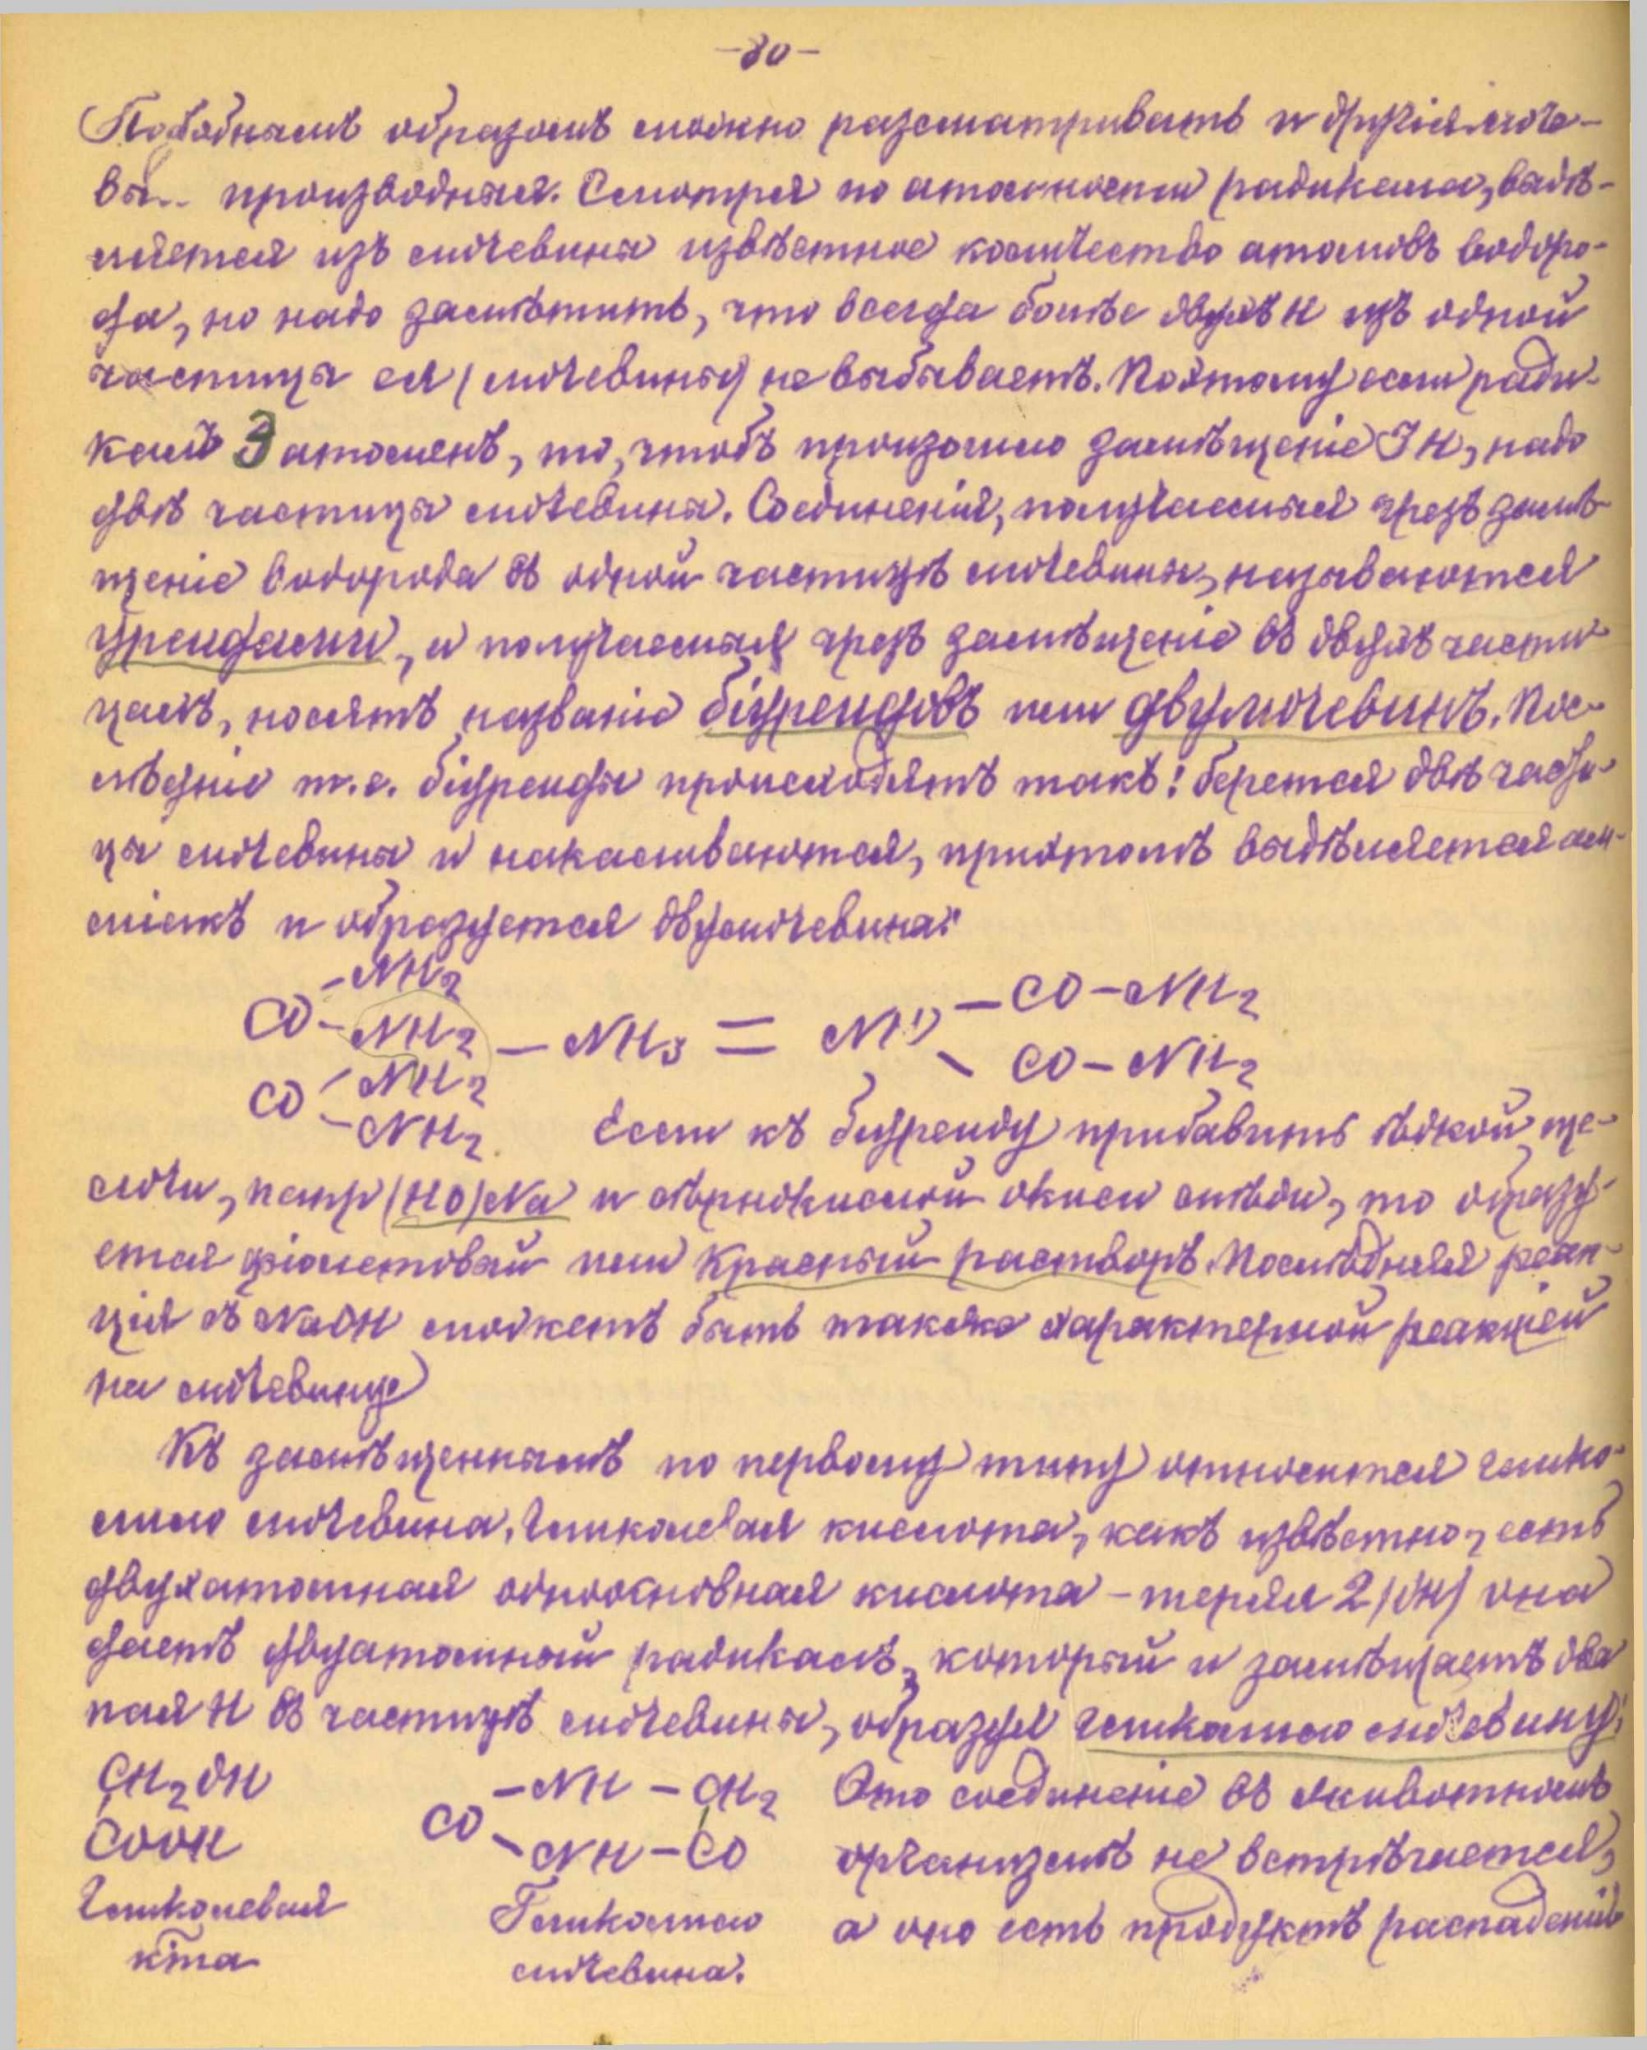 -80-
Подобнымъ образомъ можно разсматривать и другія моче-
вы.. производныя. Смотря по атомности радикала, выдѣ-
ляется изъ мочевины извѣстное количество атомовъ водоро-
да, но надо замѣтить, что всегда болѣе двухъ Н изъ одной
частицы ея (мочевины) не выбываетъ. Поэтому если ради-
калъ 3 атоменъ, то, чтобъ произошло замѣщеніе 3Н, надо
двѣ частицы мочевины. Соединенія, получаемыя чрезъ замѣ-
щеніе водорода въ одной частицѣ мочевины, называются
уреидами, и получаемыя чрезъ замѣщеніе въ двухъ части-
цахъ, носятъ названіе біуреидовъ или двумочевинъ. Пос-
лѣдніе т.е. біуреиды происходятъ такъ: берется двѣ части-
цы мочевины и накаливаются, приэтомъ выдѣляется ам-
міакъ и образуется двумочевина:
CO -NH2 -NH2
CO -NH2 -NH2 — NH3 = NH'' — CO-NH2 — CO-NH2
Если къ біуреиду прибавить ѣдкой ще-
лочи, напр (HO)Na и сѣрнокислой окиси мѣди, то образу-
ется фіолетовый или красный растворъ. Послѣдняя реак-
ція съ NaOH можетъ быть также характерной реакціей
на мочевину
Къ замѣщеннымъ по первому типу относится глико-
лило мочевина. Гликолевая кислота, какъ извѣстно, есть
двухатомная одноосновная кислота - теряя 2(ОН) она
даетъ двуатомный радикалъ, который и замѣщаетъ два
пая Н въ частицѣ мочевины, образуя гликолило мочевину:
CH2OH
COOH
Гликолевая
к־та
CO -NH-CH2 -NH-CO
Гликолило
мочевина.
Это соединеніе въ животномъ
организмѣ не встрѣчается,
а оно есть продуктъ распаденія